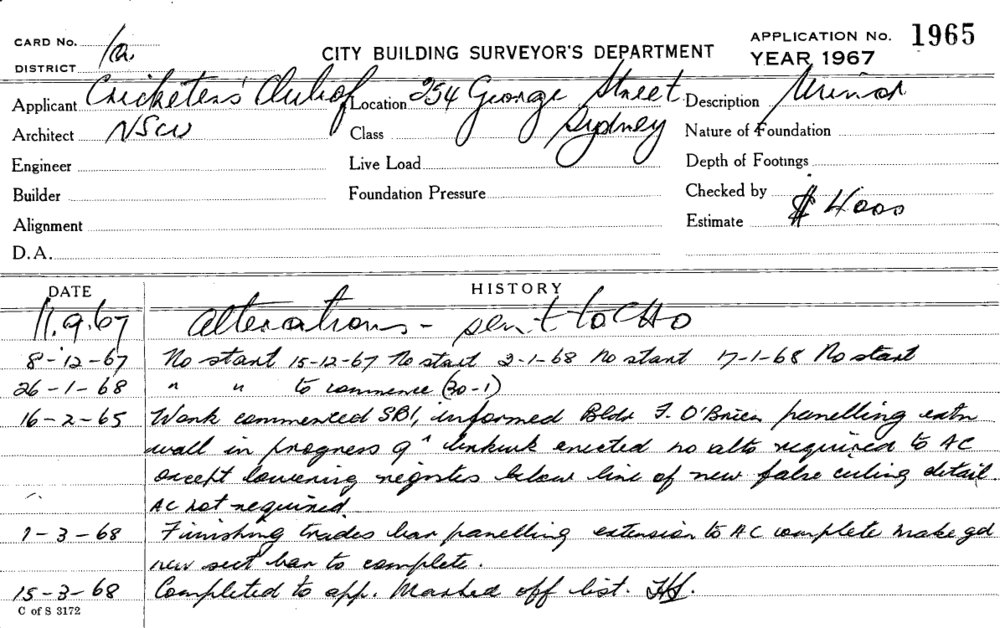 CARD No. 1a.
CITY BUILDING SURVEYOR'S DEPARTMENT
APPLICATION No. 1965
DISTRICT
YEAR 1967
Applicant Cricketers' Club of
Location 254 George Street
Description Minor
Architect NSW
Class Sydney
Nature of Foundation
Engineer
Live Load
Depth of Footings
Builder
Foundation Pressure
Checked by
Alignment
Estimate $4000
D.A.
DATE HISTORY
11.9.67 Alterations - sent to CHO
8-12-67 No start 15-12-67 No start 3-1-68 No start 17-1-68 No start
26-1-68 " " to commence (30-1)
16-2-65 Work commenced SB1, informed Bldr F. O'Brien panelling extn
wall in progress 9" brkwk erected no alts required to AC
except lowering registes below line of new false ceiling detail.
AC not required
1-3-68 Finishing trades bar panelling extension to AC complete make gd
new sect bar to complete.
15-3-68 Completed to app. Marked off list.
C of S 3172